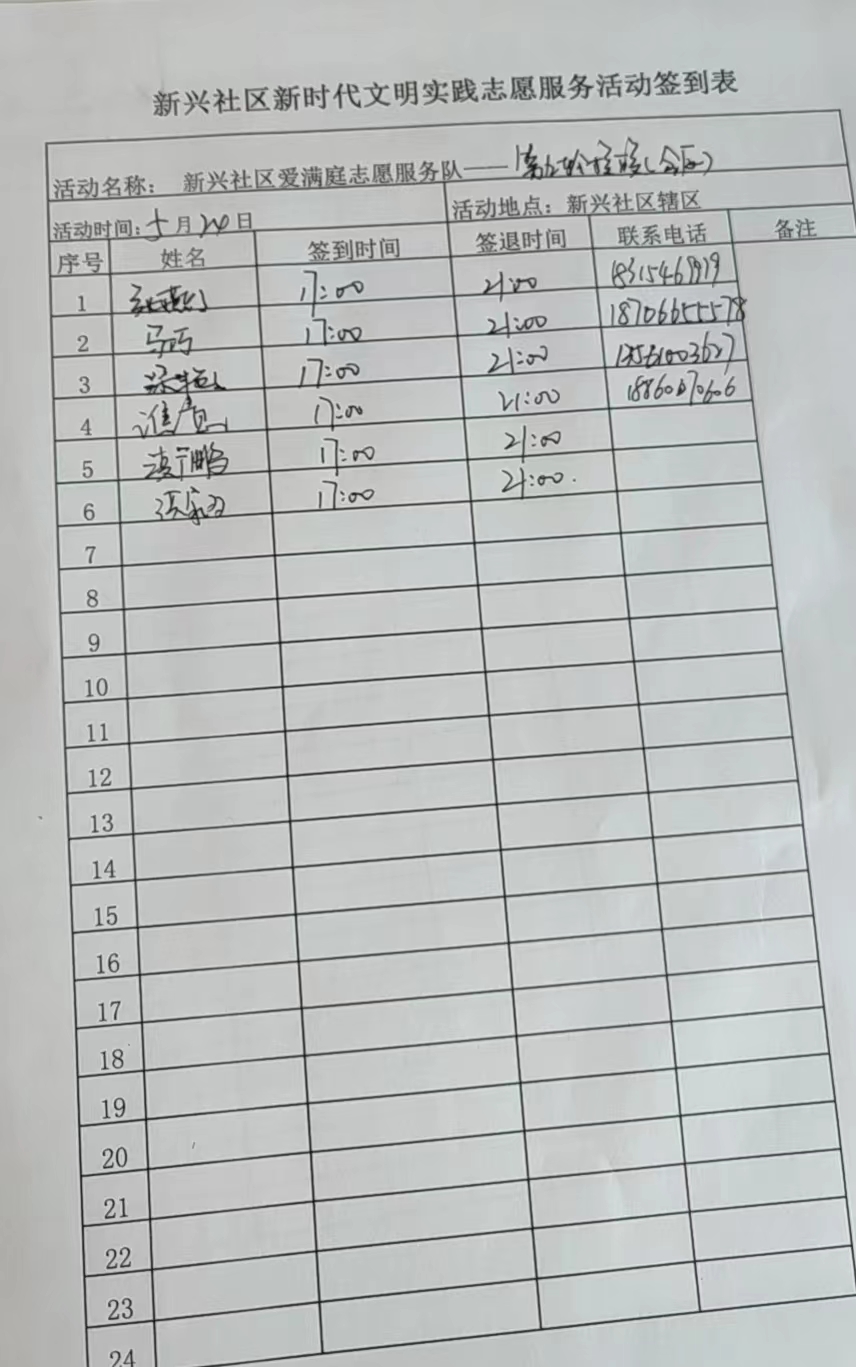 新兴社区新时代文明实践志愿服务活动签到表
活动名称： 新兴社区爱满庭志愿服务队——
活动时间：5月20日 活动地点：新兴社区辖区
序号 姓名 签到时间 签退时间 联系电话 备注
1 17:00 21:00
2 马巧 17:00 21:00 18706655578
3 17:00 21:00 13561003627
4 17:00 21:00 18860070606
5 17:00 21:00
6 17:00 21:00.
7
8
9
10
11
12
13
14
15
16
17
18
19
20
21
22
23
24